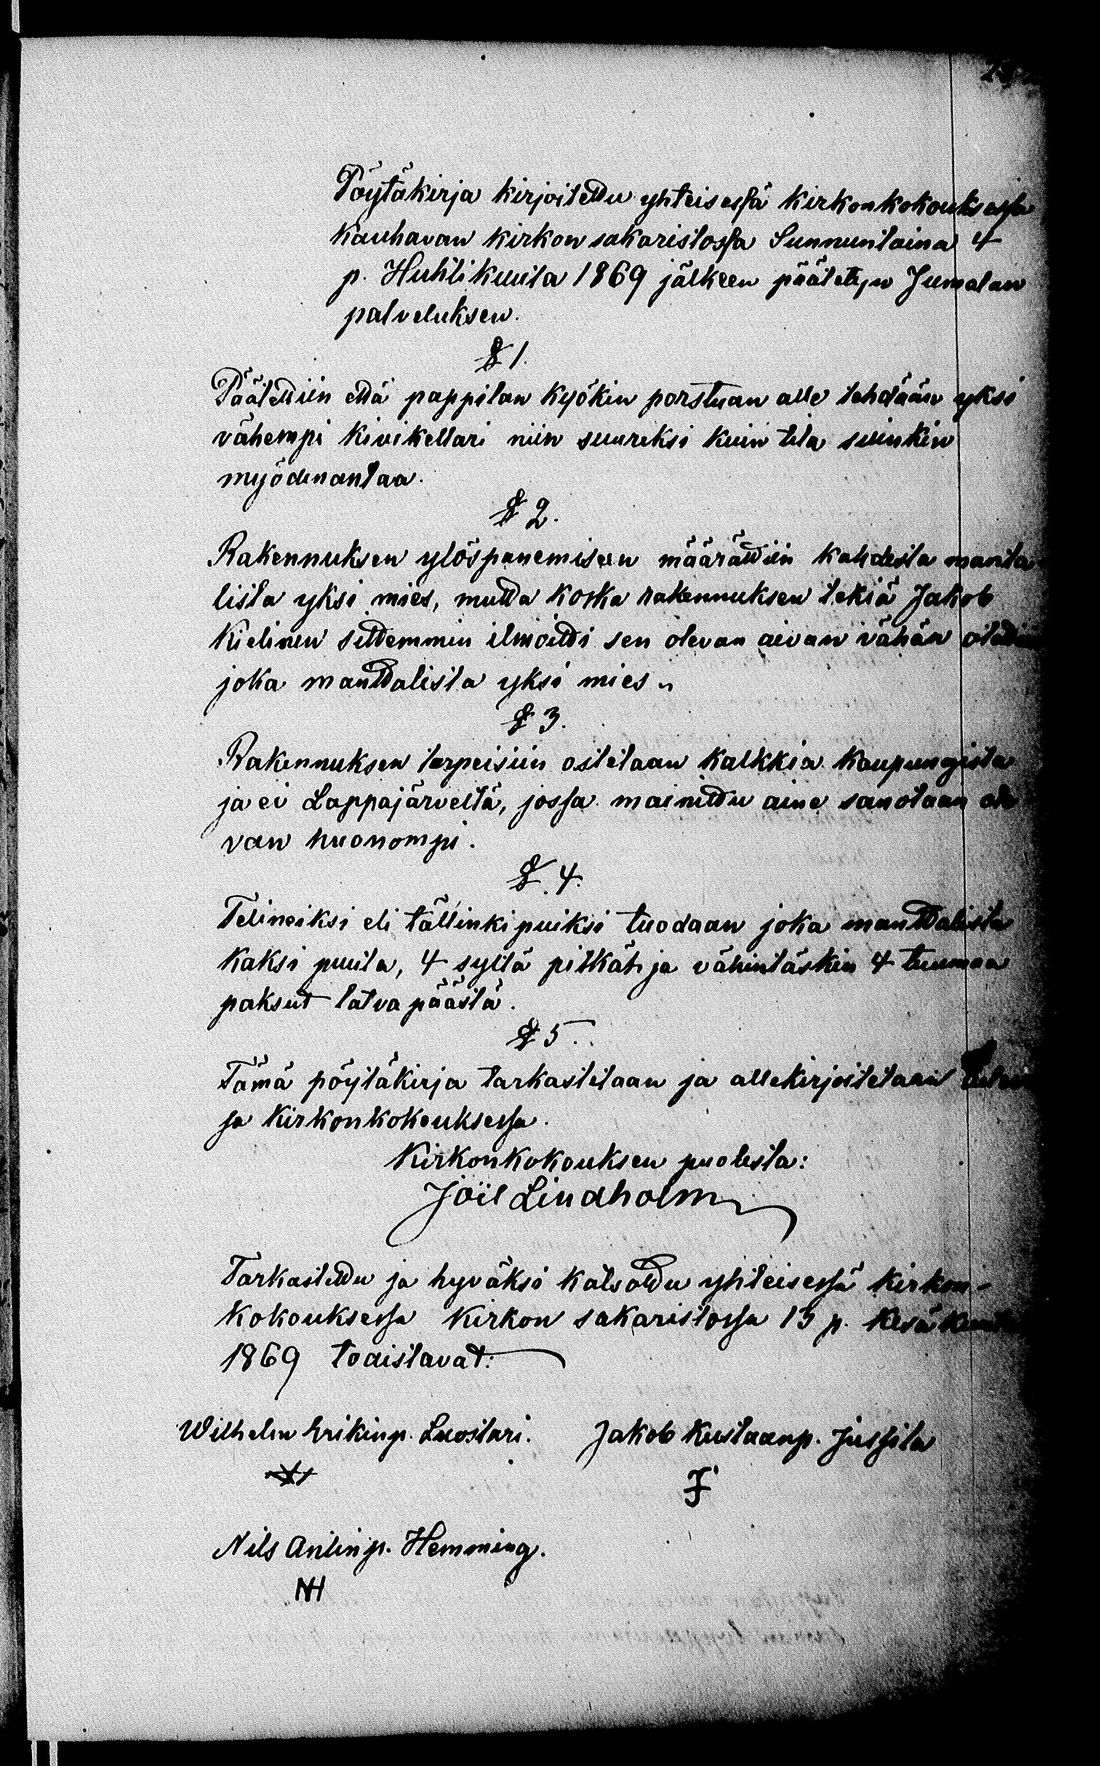 Pöytäkirja kirjoitettu yhteisessä kirkonkokouksessa
Kauhavan kirkon sakaristossa Sunnuntaina 4
p. Huhtikuuta 1869 jälkeen päätetyn Jumalan
palveluksen.
§ 1.
Päätettiin että pappilan kyökin porstuan alle tehdään yksi
vähempi kivikellari niin suureksi kuin tila suinkin
myödenantaa.
§ 2.
Rakennuksen ylöspanemiseen määrättiin kahdesta manta
lista yksi mies, mutta koska rakennuksen tekiä Jakob
Kielinen sittemmin ilmoitti sen olevan aivan vähän
joka manttalista yksi mies.
§ 3.
Rakennuksen tarpeisiin ostetaan kalkkia kaupungista
ja ei Lappajärveltä, jossa mainittu aine sanotaan ole
van huonompi.
§ 4.
Telineiksi eli tällinkipuiksi tuodaan joka manttalista
kaksi puuta, 4 syltä pitkät ja vähintäskin 4 tuumaa
paksut latva päästä.
§ 5.
Tämä pöytäkirja tarkastetaan ja allekirjoitetaan
sa kirkonkokouksessa.
Kirkonkokouksen puolesta:
Joël Lindholm
Tarkastettu ja hyväksi katsottu yhteisessä kirkon-
kokouksessa kirkon sakaristossa 13 p. Kesäkuuta
1869 todistavat:
Wilhelm Erikinp. Luostari. Jakob Kustaanp. Jussila
J
Nils Antinp. Hemming.
NH